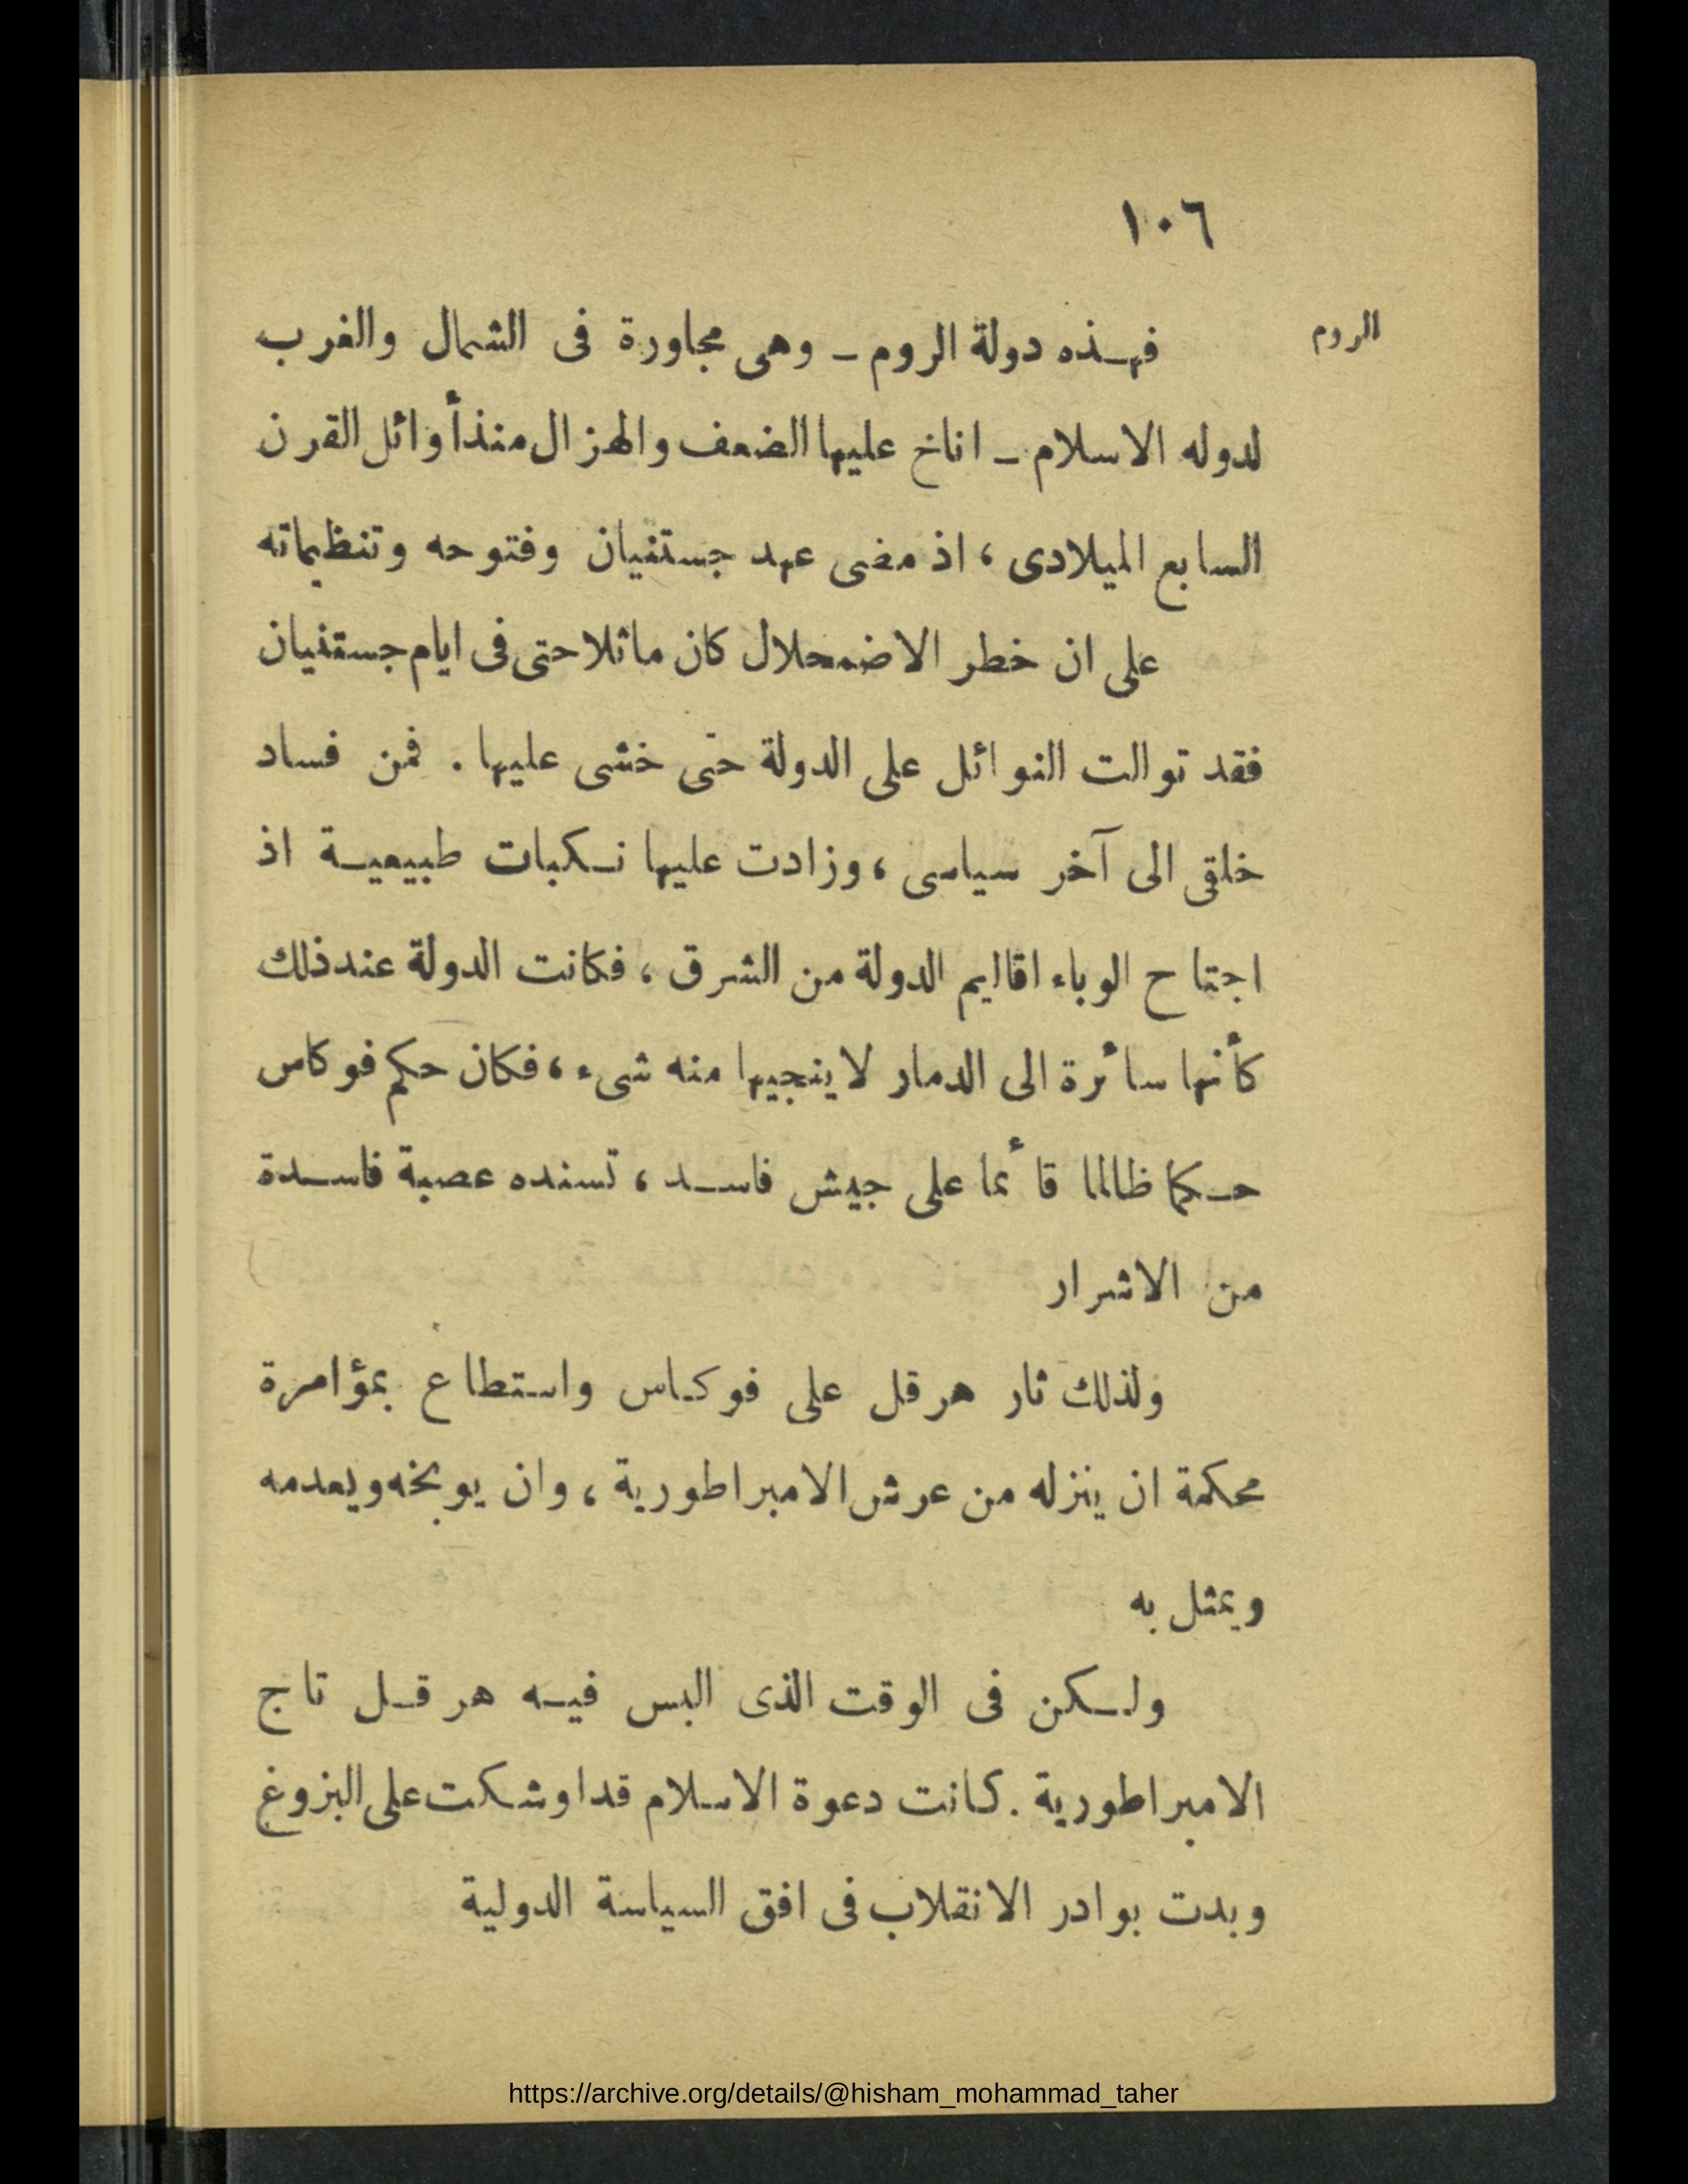 ١٠٦
الروم
فهذه دولة الروم ـ وهى مجاورة فى الشمال والغرب
لدوله الاسلام ـ اناخ عليها الضعف والهزال منذ أوائل القرن
السابع الميلادى ، اذ مضى عهد جستنيان وفتوحه وتنظيماته
على ان خطر الاضمحلال كان ماثلا حتى فى ايام جستنيان
فقد توالت النوائل على الدولة حتى خشى عليها . فمن فساد
خلقى الى آخر سياسى ، وزادت عليها نكبات طبيعية اذ
اجتاح الوباء اقاليم الدولة من الشرق ، فكانت الدولة عند ذلك
كأنها سائرة الى الدمار لا ينجيها منه شىء ، فكان حكم فوكاس
حكما ظالما قائما على جيش فاسد ، تسنده عصبة فاسدة
من الاشرار
ولذلك ثار هرقل على فوكاس واستطاع بمؤامرة
محكمة ان ينزله من عرش الامبراطورية ، وان يوبخه ويعدمه
ويمثل به
ولكن فى الوقت الذى البس فيه هرقل تاج
الامبراطورية . كانت دعوة الاسلام قد اوشكت على البزوغ
وبدت بوادر الانقلاب فى افق السياسة الدولية
https://archive.org/details/@hisham_mohammad_taher